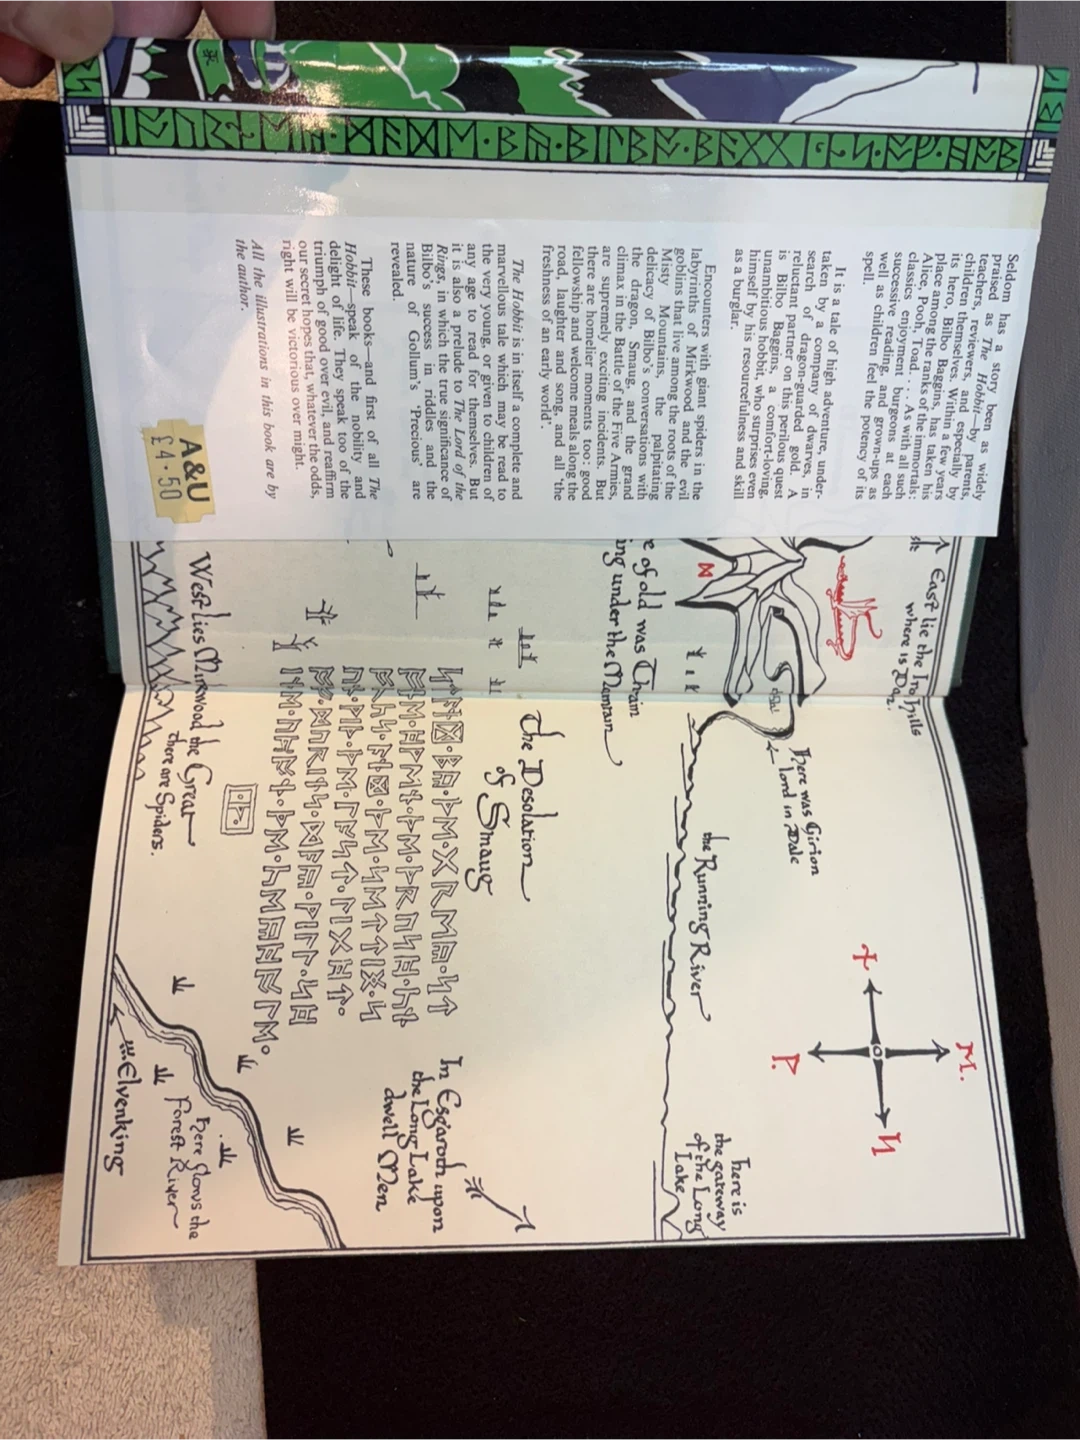 Seldom has a story been as widely
praised as The Hobbit—by parents,
teachers, reviewers, and especially by
children themselves. Within a few years
its hero, Bilbo Baggins, has taken his
place among the ranks of the immortals:
Alice, Pooh, Toad. . . . As with all such
classics enjoyment burgeons at each
successive reading, and grown-ups as
well as children feel the potency of its
spell.
It is a tale of high adventure, under-
taken by a company of dwarves, in
search of dragon-guarded gold. A
reluctant partner on this perilous quest
is Bilbo Baggins, a comfort-loving,
unambitious hobbit, who surprises even
himself by his resourcefulness and skill
as a burglar.
Encounters with giant spiders in the
labyrinths of Mirkwood and the evil
goblins that live among the roots of the
Misty Mountains, the palpitating
delicacy of Bilbo's conversations with
the dragon, Smaug, and the grand
climax in the Battle of the Five Armies,
are supremely exciting incidents. But
there are homelier moments too: good
fellowship and welcome meals along the
road, laughter and song, and all 'the
freshness of an early world'.
The Hobbit is in itself a complete and
marvellous tale which may be read to
the very young, or given to children of
any age to read for themselves. But
it is also a prelude to The Lord of the
Rings, in which the true significance of
Bilbo's success in riddles and the
nature of Gollum's 'Precious' are
revealed.
These books—and first of all The
Hobbit—speak of the nobility and
delight of life. They speak too of the
triumph of good over evil, and reaffirm
our secret hopes that, whatever the odds,
right will be victorious over might.
All the illustrations in this book are by
the author.
A&U
£4·50
East lie the Iron Hills
where is Dain.
Here was Girion
lord in Dale
Dale
e of old was Thrain
ing under the Mountain
the Running River
M.
N
P.
Here is
the gateway
of the Long
Lake
The Desolation
of Smaug
ᛋᛏᚪᚾᛞ᛫ᛒᚣ᛫ᚦᛖ᛫ᚷᚱᛖᚣ᛫ᛋᛏ
ᚩᚾᛖ᛫ᚻᚹᛖᚾ᛫ᚦᛖ᛫ᚦᚱᚢᛋᚻ᛫ᚳᚾ
ᚩᚳᛋ᛫ᚪᚾᛞ᛫ᚦᛖ᛫ᛋᛖᛏᛏᛁᚾᚷ᛫ᛋ
ᚢᚾ᛫ᚹᛁᚦ᛫ᚦᛖ᛫ᛚᚪᛋᛏ᛫ᛚᛁᚷᚻᛏ᛫
ᚩᚠ᛫ᛞᚢᚱᛁᚾᛋ᛫ᛞᚪᚣ᛫ᚹᛁᛚᛚ᛫ᛋᚻ
ᛁᚾᛖ᛫ᚢᛈᚩᚾ᛫ᚦᛖ᛫ᚳᛖᚣᚻᚩᛚᛖ᛫
In Esgaroth upon
the Long Lake
dwell Men
West lies Mirkwood the Great
there are Spiders.
Here flows the
Forest River
Elvenking